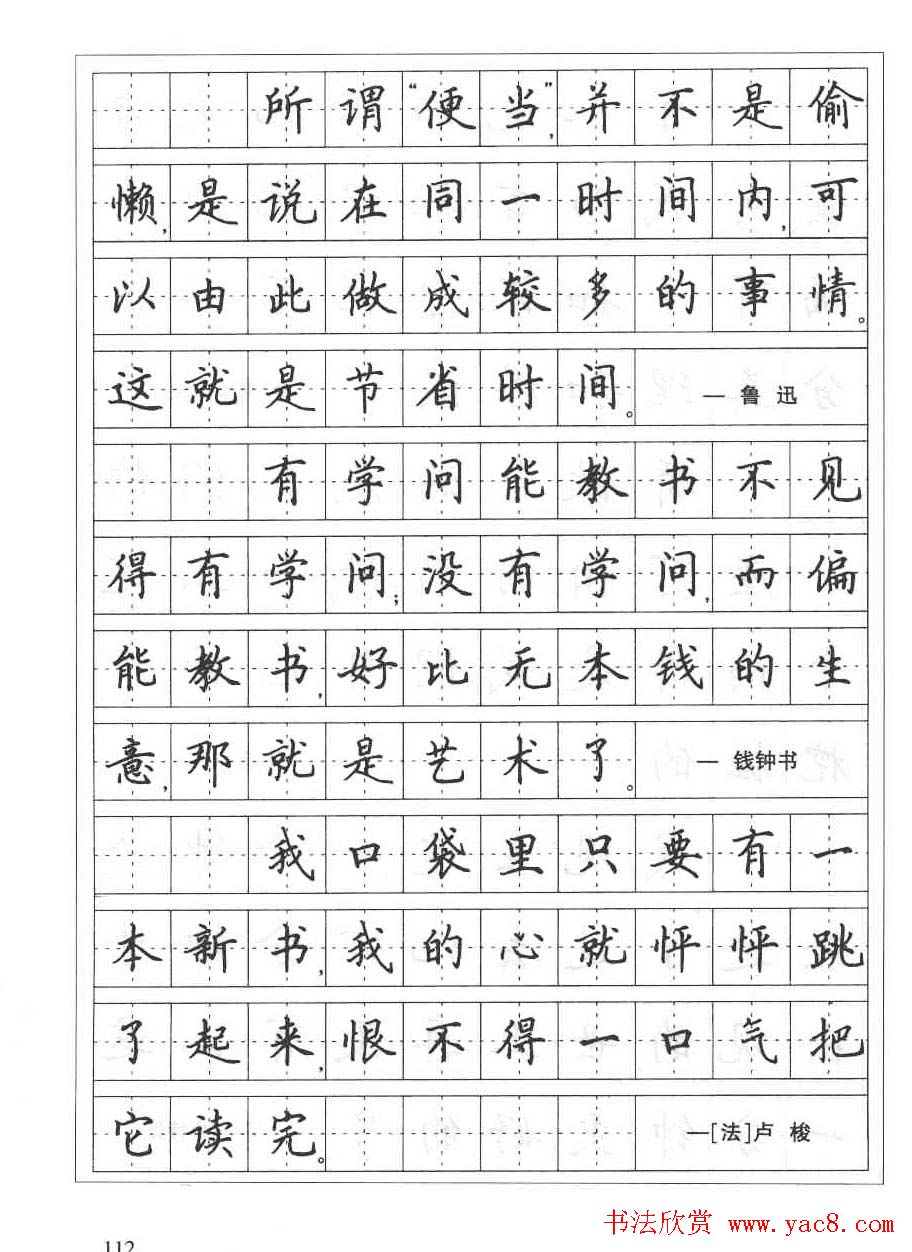 所谓“便当”,并不是偷
懒,是说在同一时间内,可
以由此做成较多的事情。
这就是节省时间。 — 鲁迅
有学问能教书不见
得有学问;没有学问,而偏
能教书,好比无本钱的生
意,那就是艺术了。 — 钱钟书
我口袋里只要有一
本新书,我的心就怦怦跳
了起来,恨不得一口气把
它读完。 —[法]卢梭
112
书法欣赏 www.yac8.com